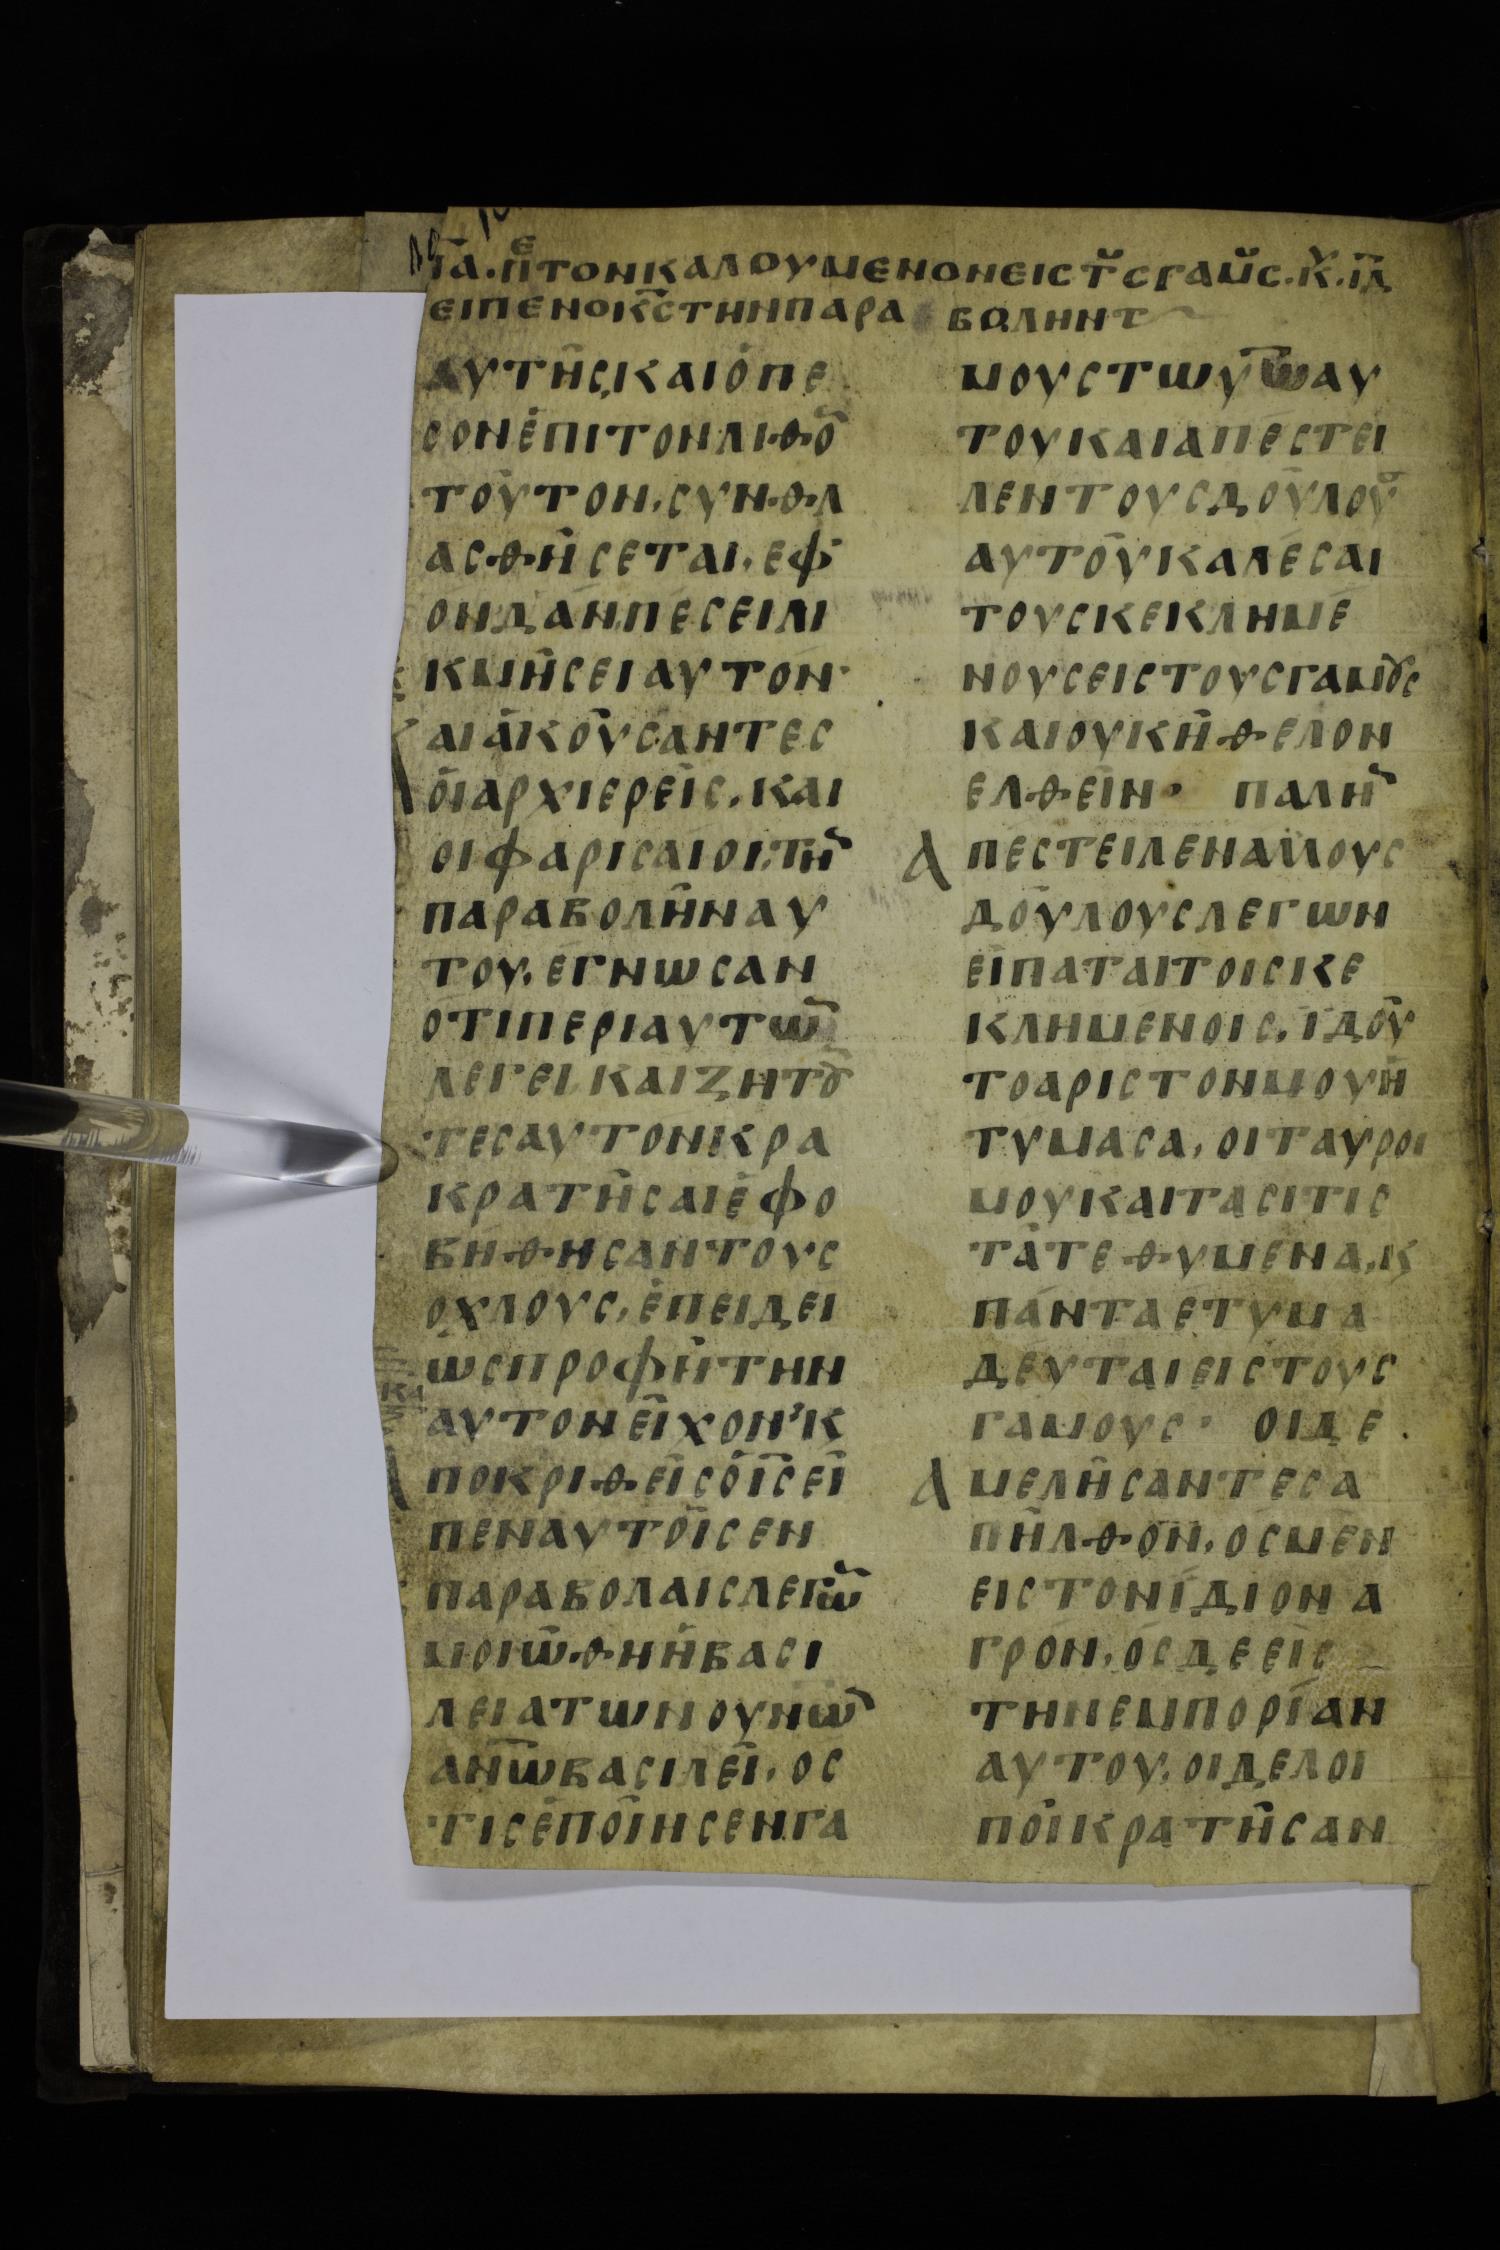 ΝΑ·ΠΕ ΤΟΝ ΚΑΛΟΥΜΕΝΟΝ ΕΙΣ Τȣ̆Σ ΓΑΜȣ̆Σ·Κ·ΙΔ
ΕΙΠΕΝ Ο ΚΣ ΤΗΝ ΠΑΡΑΒΟΛΗΝ Τ
ΑΥΤΗΣ, ΚΑΙ Ο ΠΕ
ΣΟΝ ΕΠΙ ΤΟΝ ΛΙΘΟ̅
ΤΟΥΤΟΝ, ΣΥΝΘΛ
ΑΣΘΗΣΕΤΑΙ, ΕΦ
ΟΝ Δ ΑΝ ΠΕΣΕΙ ΛΙ
ΚΜΗΣΕΙ ΑΥΤΟΝ·
ΑΙ ΑΚΟΥΣΑΝΤΕΣ
ΟΙ ΑΡΧΙΕΡΕΙΣ, ΚΑΙ
ΟΙ ΦΑΡΙΣΑΙΟΙ, ΤΗ̅
ΠΑΡΑΒΟΛΗΝ ΑΥ
ΤΟΥ, ΕΓΝΩΣΑΝ
ΟΤΙ ΠΕΡΙ ΑΥΤΩ̅
ΛΕΓΕΙ, ΚΑΙ ΖΗΤȣ
ΤΕΣ ΑΥΤΟΝ ΚΡΑ
ΚΡΑΤΗΣΑΙ ΕΦΟ
ΒΗΘΗΣΑΝ ΤΟΥΣ
ΟΧΛΟΥΣ, ΕΠΕΙΔΕΙ
ΩΣ ΠΡΟΦΗΤΗΝ
ΑΥΤΟΝ ΕΙΧΟΝ Κ
ΠΟΚΡΙΘΕΙΣ Ο Ι̅Σ̅ ΕΙ
ΠΕΝ ΑΥΤΟΙΣ ΕΝ
ΠΑΡΑΒΟΛΑΙΣ ΛΕΓΩ̅
ΜΟΙΩΘΗ Η ΒΑΣΙ
ΛΕΙΑ ΤΩΝ ΟΥΝΩ̅
ΑΝΩ̅ ΒΑΣΙΛΕΙ, ΟΣ
ΤΙΣ ΕΠΟΙΗΣΕΝ ΓΑ
ΜΟΥΣ ΤΩ Υ̅Ω̅ ΑΥ
ΤΟΥ ΚΑΙ ΑΠΕΣΤΕΙ
ΛΕΝ ΤΟΥΣ ΔΟΥΛΟΥ
ΑΥΤΟΥ ΚΑΛΕΣΑΙ
ΤΟΥΣ ΚΕΚΛΗΜΕ
ΝΟΥΣ ΕΙΣ ΤΟΥΣ ΓΑΜȣΣ
ΚΑΙ ΟΥΚ ΗΘΕΛΟΝ
ΕΛΘΕΙΝ· ΠΑΛΗ̅
Α ΠΕΣΤΕΙΛΕΝ ΑΛΛΟΥΣ
ΔΟΥΛΟΥΣ ΛΕΓΩΝ
ΕΙΠΑΤΑΙ ΤΟΙΣ ΚΕ
ΚΛΗΜΕΝΟΙΣ, ΙΔΟΥ
ΤΟ ΑΡΙΣΤΟΝ ΜΟΥ Η
ΤΥΜΑΣΑ, ΟΙ ΤΑΥΡΟΙ
ΜΟΥ ΚΑΙ ΤΑ ΣΙΤΙΣ
ΤΑ ΤΕΘΥΜΕΝΑ, Κ
ΠΑΝΤΑ ΕΤΥΜΑ
ΔΕΥΤΑΙ ΕΙΣ ΤΟΥΣ
ΓΑΜΟΥΣ· ΟΙ ΔΕ
Α ΜΕΛΗΣΑΝΤΕΣ Α
ΠΗΛΘΟΝ, ΟΣ ΜΕΝ
ΕΙΣ ΤΟΝ ΙΔΙΟΝ Α
ΓΡΟΝ, ΟΣ ΔΕ ΕΙΣ
ΤΗΝ ΕΜΠΟΡΙΑΝ
ΑΥΤΟΥ, ΟΙ ΔΕ ΛΟΙ
ΠΟΙ ΚΡΑΤΗΣΑΝ